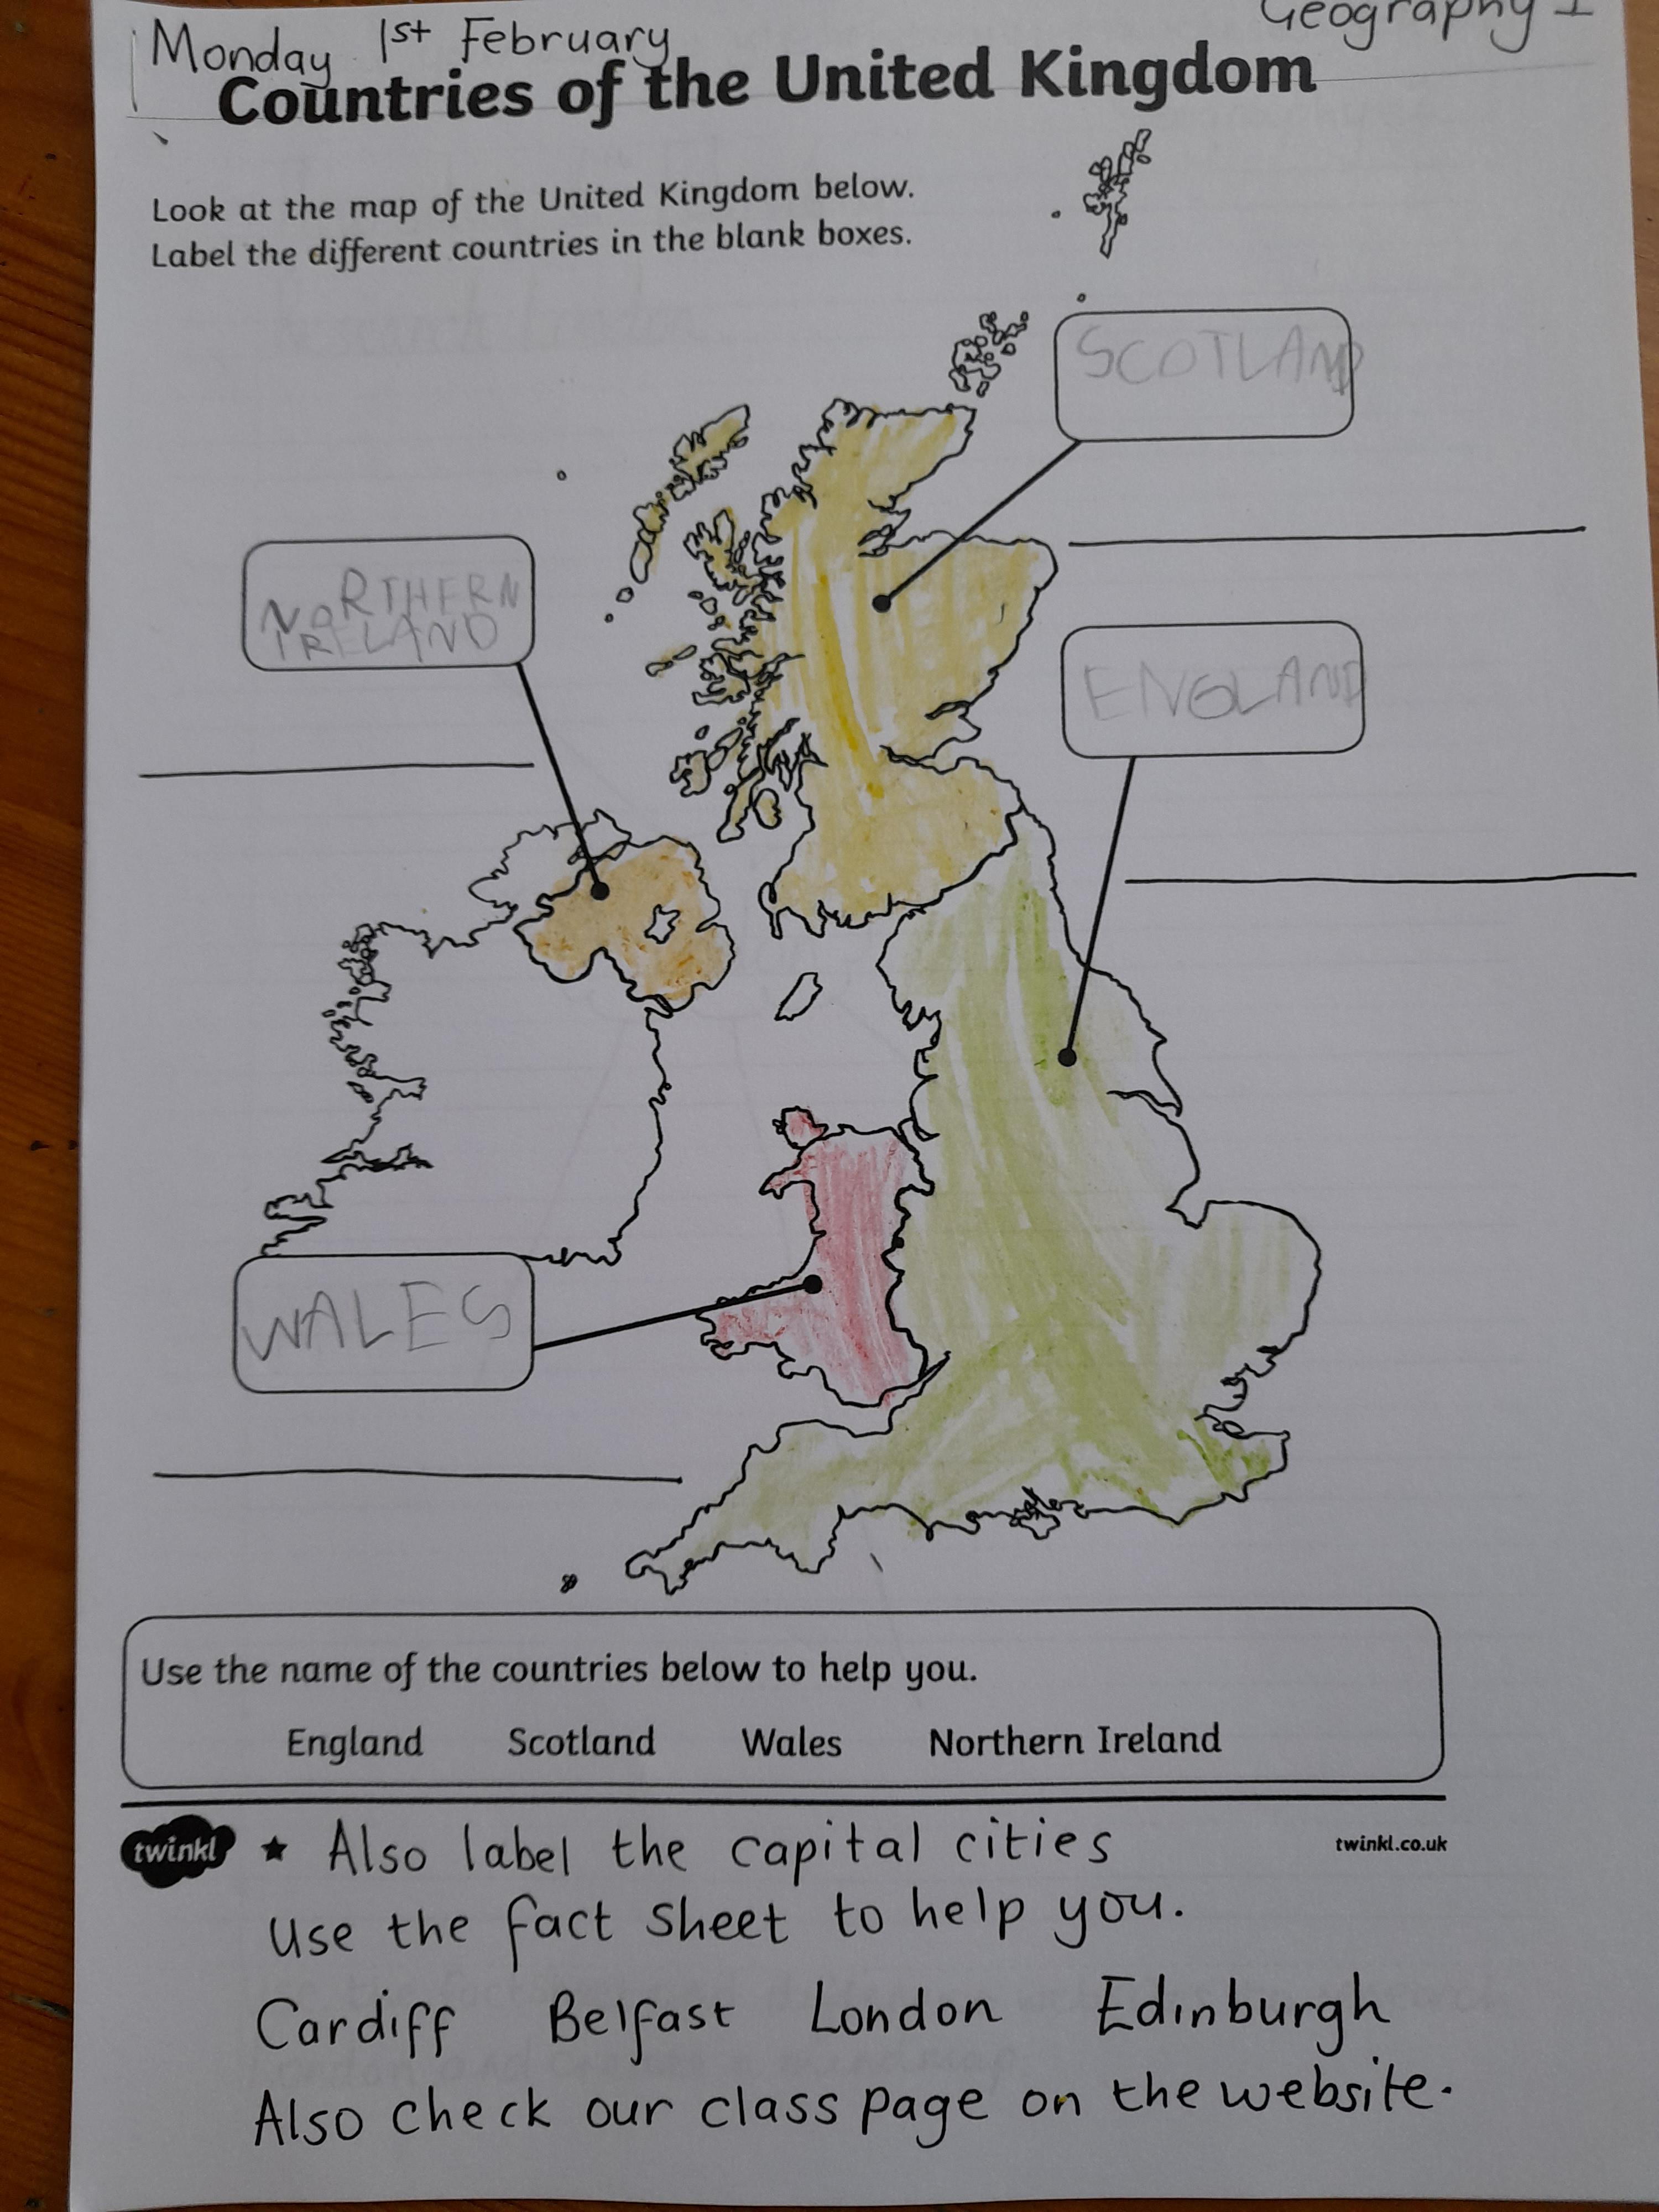 Monday 1st February
Geography 1
Countries of the United Kingdom
Look at the map of the United Kingdom below.
Label the different countries in the blank boxes.
SCOTLAND
NORTHERN
IRELAND
ENGLAND
WALES
Use the name of the countries below to help you.
England Scotland Wales Northern Ireland
twinkl ★ Also label the capital cities twinkl.co.uk
Use the fact sheet to help you.
Cardiff Belfast London Edinburgh
Also check our class page on the website.